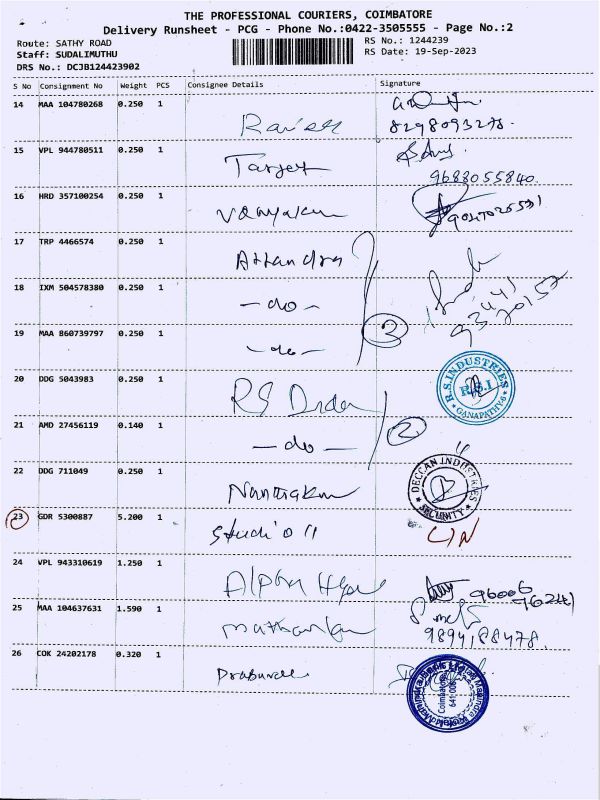 THE PROFESSIONAL COURIERS, COIMBATORE
Delivery Runsheet - PCG - Phone No.:0422-3505555 - Page No.:2
Route: SATHY ROAD
RS No.: 1244239
Staff: SUDALIMUTHU
RS Date: 19-Sep-2023
DRS No.: DCJB124423902
S No Consignment No Weight PCS Consignee Details Signature
14 MAA 104780268 0.250 1
8298093278.
15 VPL 944780511 0.250 1 Target
9688055840.
16 HRD 357100254 0.250 1
17 TRP 4466574 0.250 1
18 IXM 504578380 0.250 1 -do-
3
19 MAA 860739797 0.250 1 -do-
20 DDG 5043983 0.250 1 RS
R.S.INDUSTRIES
R.S.I.
GANAPATHY-6
21 AMD 27456119 0.140 1 -do- 2
22 DDG 711049 0.250 1
DECCAN INDUSTRIES
SECURITY
23 GDR 5300887 5.200 1 Studio 11
24 VPL 943310619 1.250 1 Alpha
96006
25 MAA 104637631 1.590 1
9894188478.
26 COK 24202178 0.320 1
Coimbatore
641 006